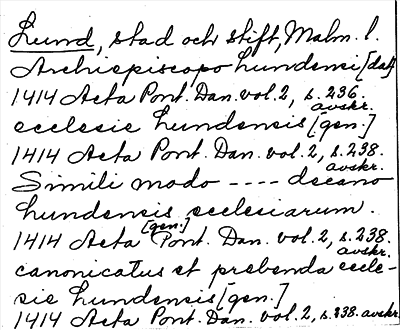 Lund, stad och stift, Malm. l.
Archiepiscopo Lundensi [dat]
1414 Acta Pont. Dan. vol. 2, s. 236.
avskr.
ecclesie Lundensis [gen.]
1414 Acta Pont. Dan. vol. 2, s. 238.
avskr.
Simili modo ---- decano
Lundensis ecclesiarum.
[gen.]
1414 Acta Pont. Dan. vol. 2, s. 238.
avskr.
canonicatus et prebenda eccle-
sie Lundensis [gen.]
1414 Acta Pont. Dan. vol. 2, s. 238. avskr.